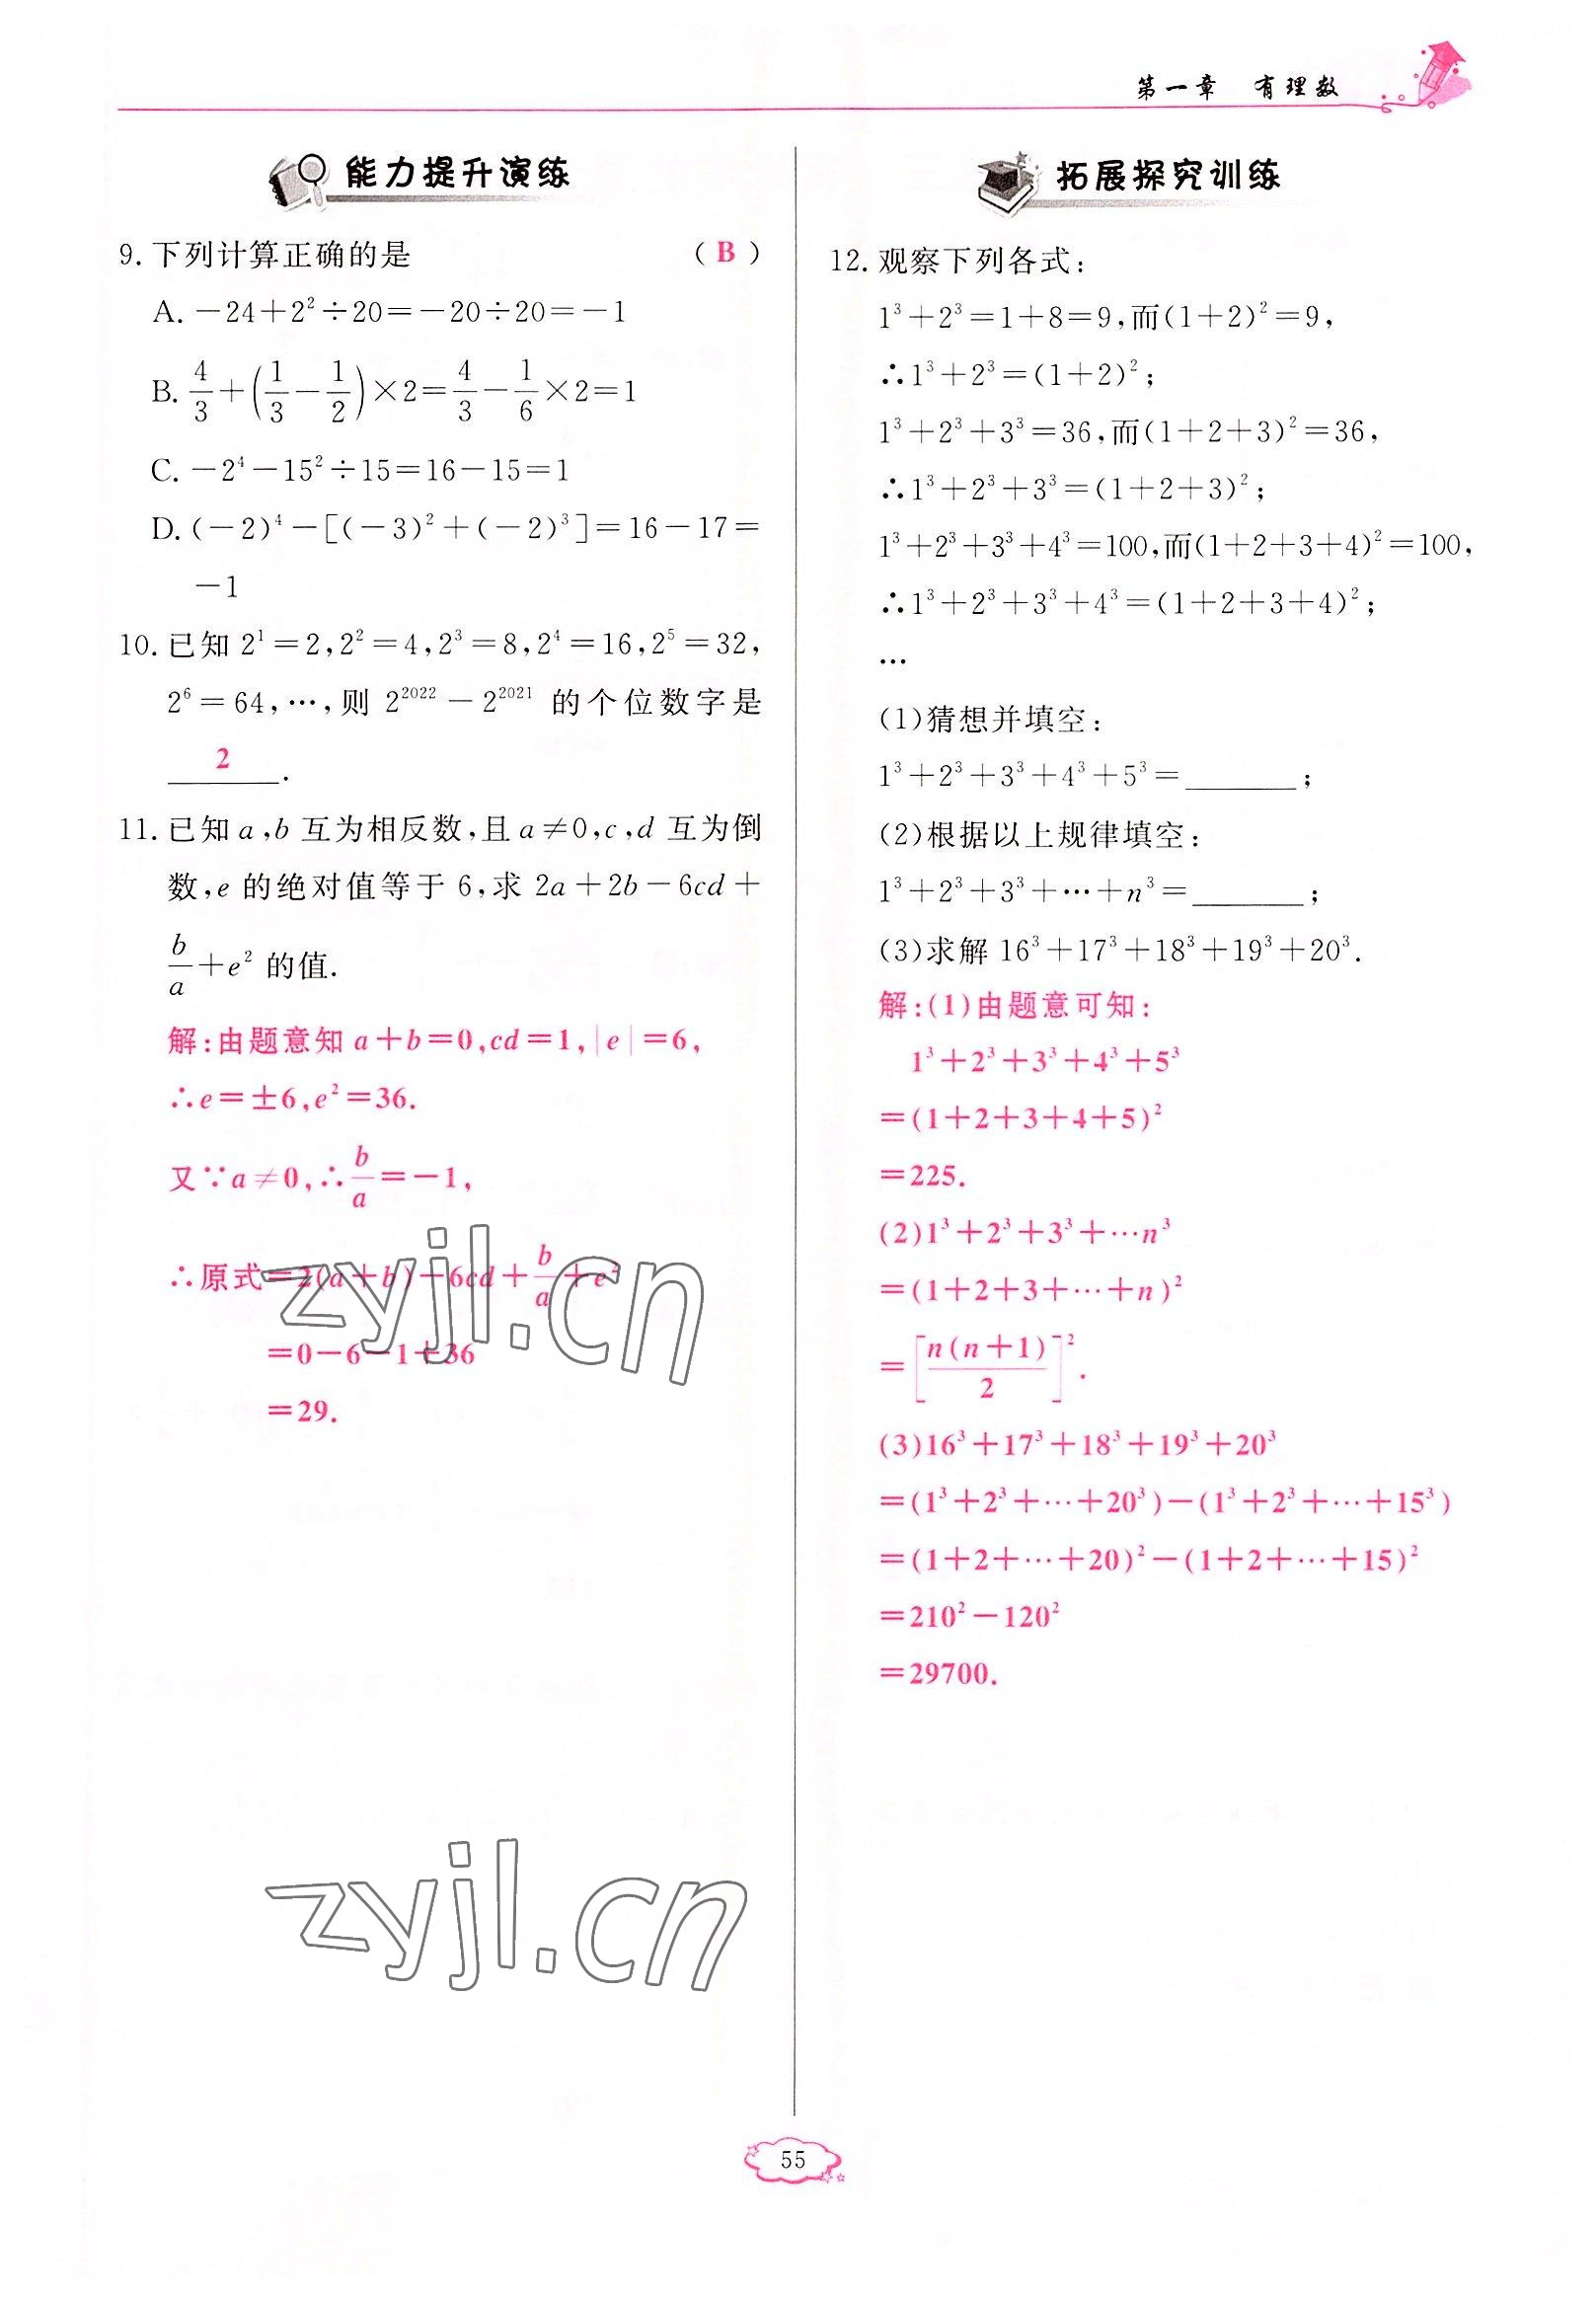 第一章 有理数
能力提升演练
9. 下列计算正确的是 ( B )
A. －24＋2²÷20＝－20÷20＝－1
B. 4/3＋(1/3－1/2)×2＝4/3－1/6×2＝1
C. －2⁴－15²÷15＝16－15＝1
D. (－2)⁴－[(－3)²＋(－2)³]＝16－17＝
－1
10. 已知 2¹＝2,2²＝4,2³＝8,2⁴＝16,2⁵＝32,
2⁶＝64,…,则 2²⁰²²－2²⁰²¹ 的个位数字是
2.
11. 已知 a,b 互为相反数,且 a≠0,c,d 互为倒
数,e 的绝对值等于 6,求 2a＋2b－6cd＋
b/a＋e² 的值.
解:由题意知 a＋b＝0,cd＝1,|e|＝6,
∴e＝±6,e²＝36.
又∵a≠0,∴b/a＝－1,
∴原式＝2(a＋b)－6cd＋b/a＋e²
＝0－6－1＋36
＝29.
拓展探究训练
12. 观察下列各式:
1³＋2³＝1＋8＝9,而(1＋2)²＝9,
∴1³＋2³＝(1＋2)²;
1³＋2³＋3³＝36,而(1＋2＋3)²＝36,
∴1³＋2³＋3³＝(1＋2＋3)²;
1³＋2³＋3³＋4³＝100,而(1＋2＋3＋4)²＝100,
∴1³＋2³＋3³＋4³＝(1＋2＋3＋4)²;
…
(1)猜想并填空:
1³＋2³＋3³＋4³＋5³＝______;
(2)根据以上规律填空:
1³＋2³＋3³＋…＋n³＝______;
(3)求解 16³＋17³＋18³＋19³＋20³.
解:(1)由题意可知:
1³＋2³＋3³＋4³＋5³
＝(1＋2＋3＋4＋5)²
＝225.
(2)1³＋2³＋3³＋…n³
＝(1＋2＋3＋…＋n)²
＝[n(n＋1)/2]².
(3)16³＋17³＋18³＋19³＋20³
＝(1³＋2³＋…＋20³)－(1³＋2³＋…＋15³)
＝(1＋2＋…＋20)²－(1＋2＋…＋15)²
＝210²－120²
＝29700.
zyjl.cn
zyjl.cn
55